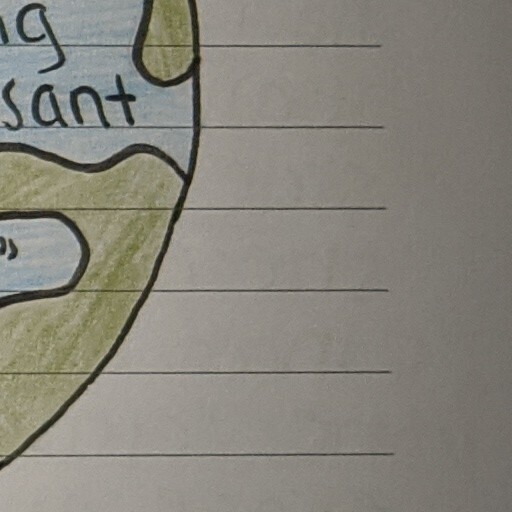 ng
sant
"